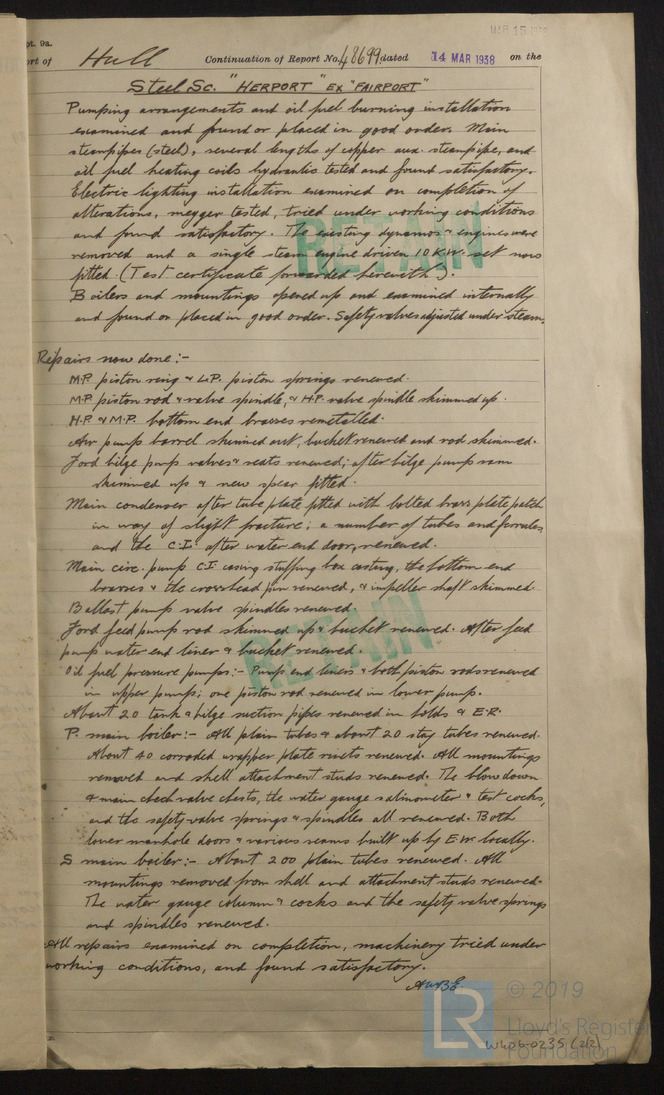 MAR 15 1938
pt. 9a.
ort of Hull Continuation of Report No. 48699 dated 14 MAR 1938 on the
Steel Sc. "HERPORT" Ex "FAIRPORT"
Pumping arrangements and oil fuel burning installation
examined and found or placed in good order. Main
steampipes (steel), several lengths of copper aux. steampipe, and
oil fuel heating coils hydraulic tested and found satisfactory.
Electric lighting installation examined on completion of
alterations, megger tested, tried under working conditions
and found satisfactory. The existing dynamos & engines were
removed and a single steam engine driven 10 K.W. set now
fitted. (Test certificate forwarded herewith).
Boilers and mountings opened up and examined internally
and found or placed in good order. Safety valves adjusted under steam.
RETAIN
Repairs now done:-
M.P. piston ring & L.P. piston springs renewed.
M.P. piston rod & valve spindle, & H.P. valve spindle skimmed up.
H.P. & M.P. bottom end brasses remetalled.
Air pump barrel skimmed out, bucket renewed and rod skimmed.
Ford bilge pump valves & seats renewed; after bilge pump ram
skimmed up & new spear fitted.
Main condenser after tube plate fitted with bolted brass plate patch
in way of slight fracture; a number of tubes and ferrules,
and the C.I. after water end door, renewed.
Main circ. pump C.I. casing stuffing box casting, the bottom end
brasses & the crosshead pin renewed, & impeller shaft skimmed.
Ballast pump valve spindles renewed.
Ford feed pump rod skimmed up & bucket renewed. After feed
pump water end liner & bucket renewed.
RETAIN
Oil fuel pressure pumps:- Pump end liners & both piston rods renewed
in upper pump; one piston rod renewed in lower pump.
About 20 tank & bilge suction pipes renewed in holds & E.R.
P. main boiler:- All plain tubes & about 20 stay tubes renewed.
About 40 corroded wrapper plate rivets renewed. All mountings
removed and shell attachment studs renewed. The blow down
& main check valve chests, the water gauge salinometer & test cocks,
and the safety valve springs & spindles all renewed. Both
lower manhole doors & various seams built up by E.W. locally.
S main boiler:- About 200 plain tubes renewed. All
mountings removed from shell and attachment studs renewed.
The water gauge column & cocks and the safety valve springs
and spindles renewed.
All repairs examined on completion, machinery tried under
working conditions, and found satisfactory.
LR © 2019
Lloyd's Register
Foundation
W406-0235 (2/2)